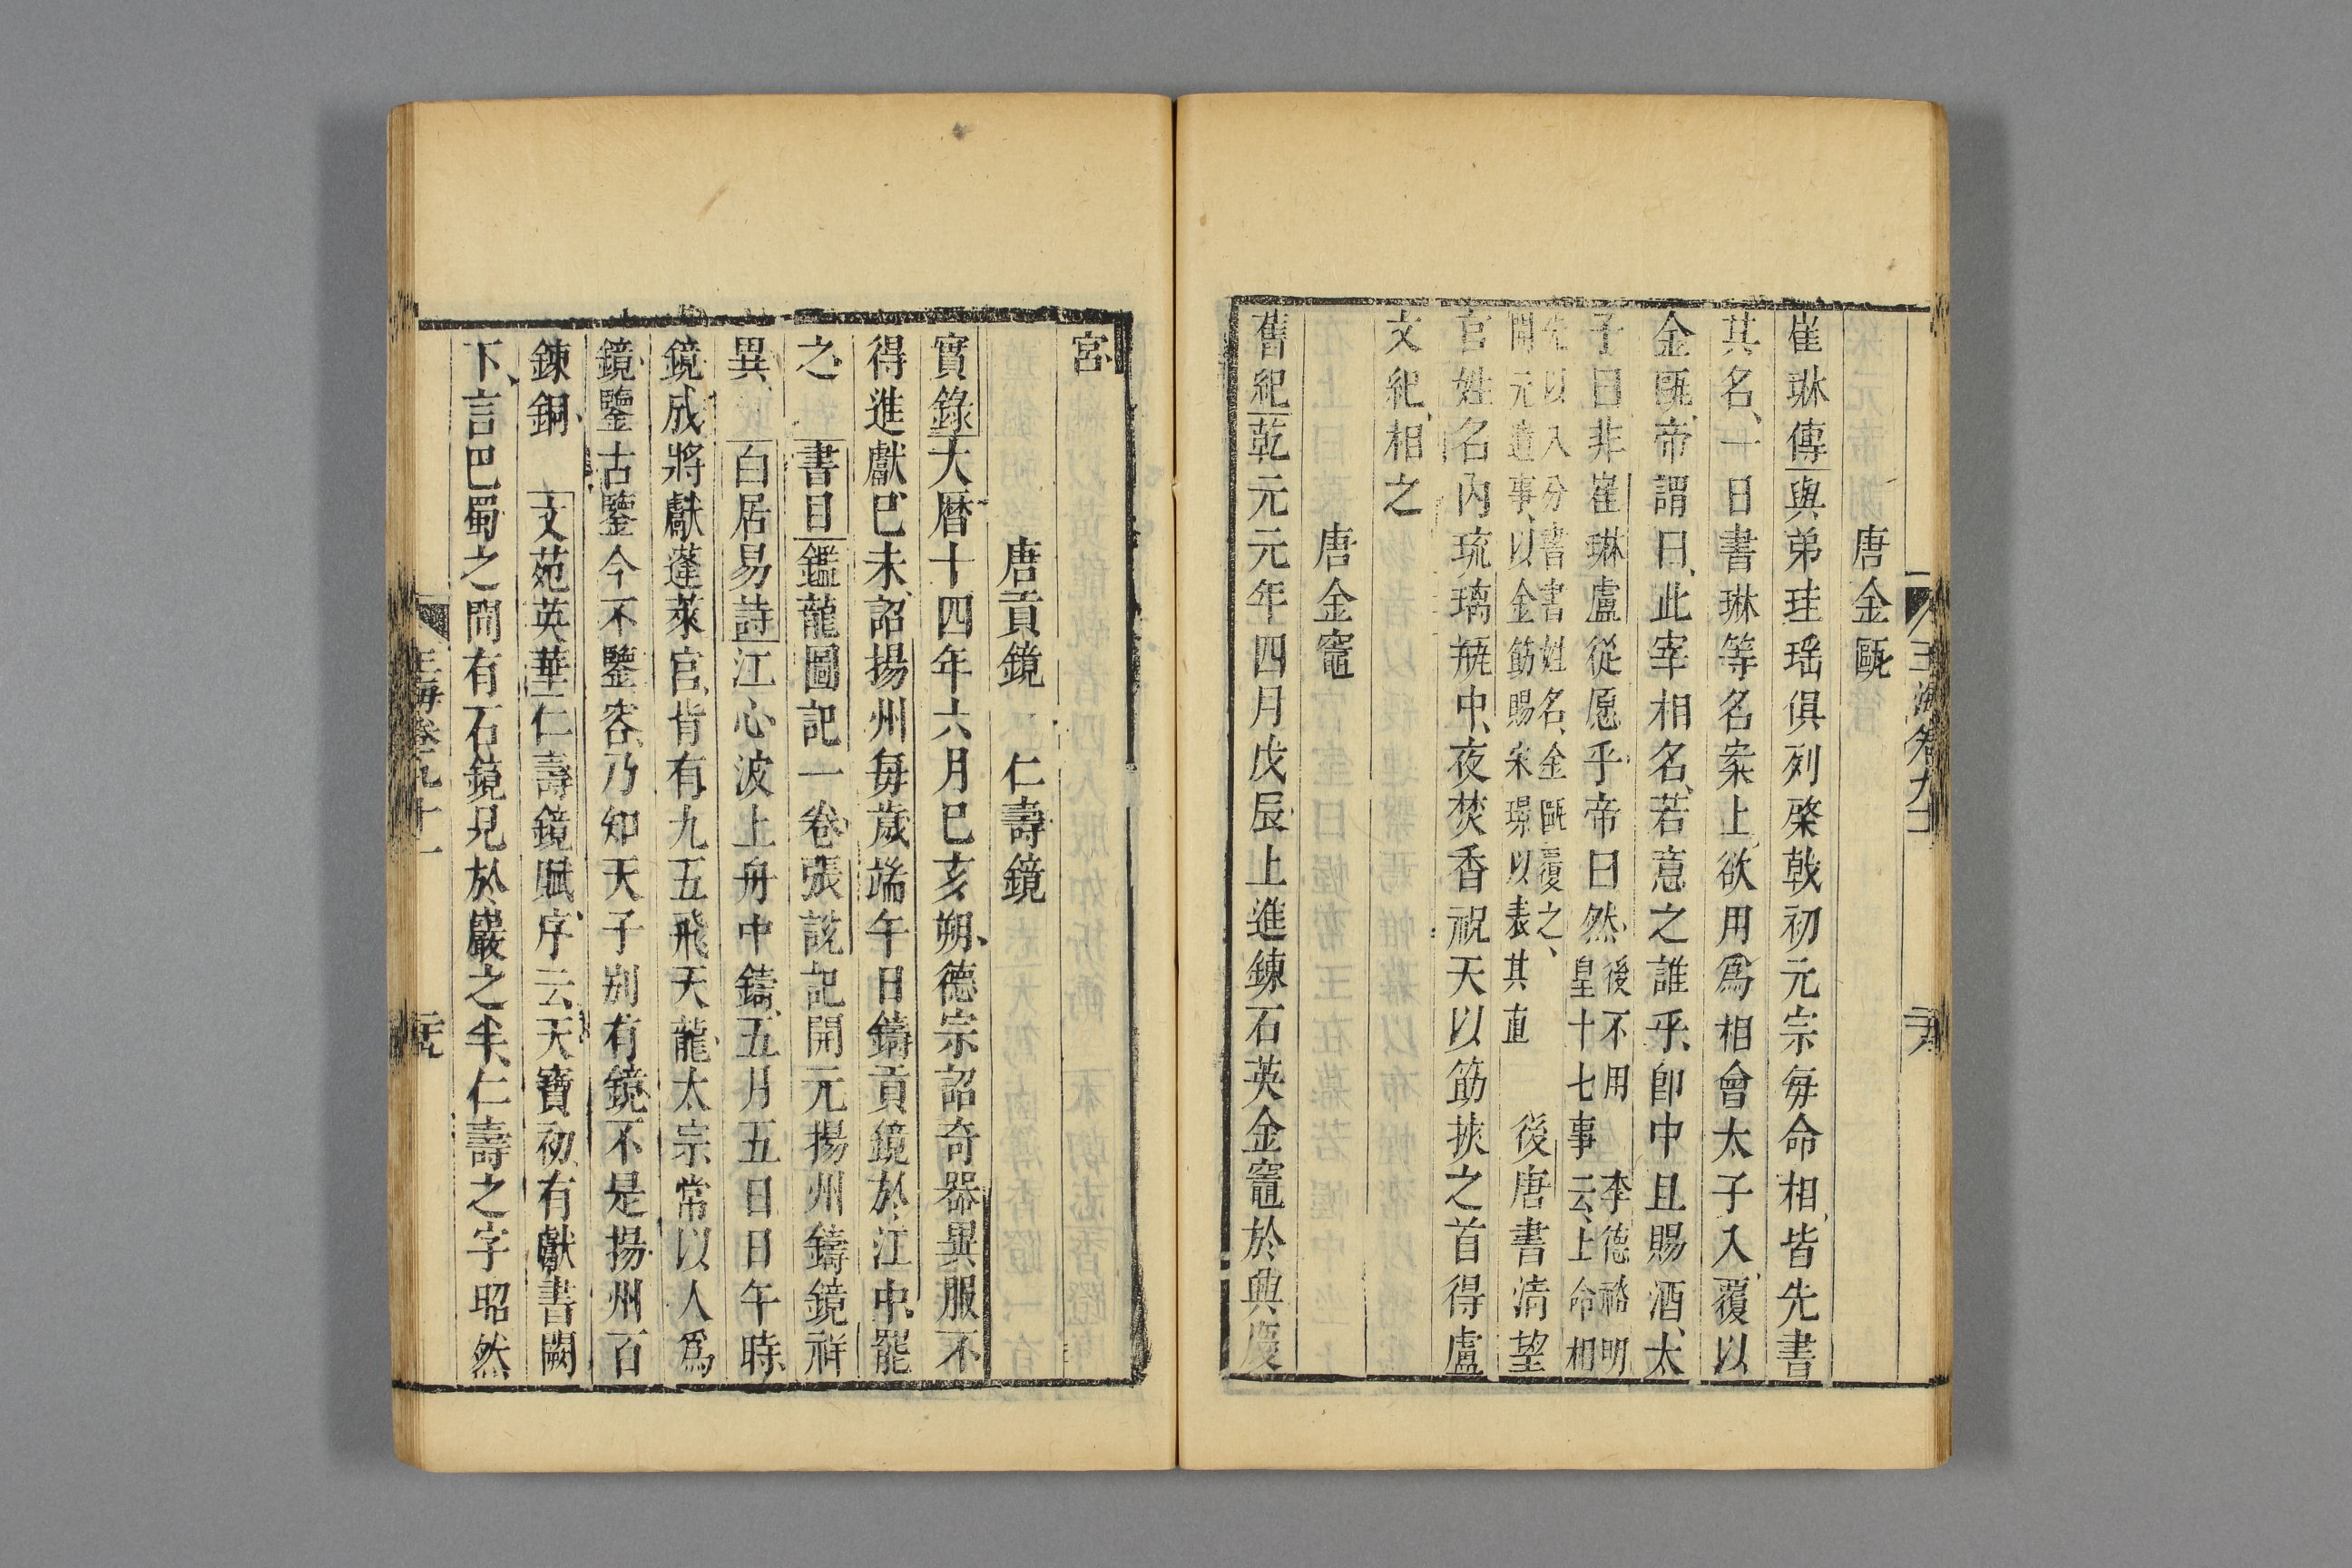 玉海卷九十一
唐金甌
崔琳傳與弟珪瑶俱列棨戟初元宗每命相皆先書
其名一日書琳等名案上欲用爲相會太子入覆以
金甌帝謂曰此宰相名若意之誰乎卽中且賜酒太
子曰非崔琳盧從愿乎帝曰然後不用 李德裕明
皇十七事云上命相
先以八分書書姓名金甌覆之
開元遺事以金筯賜宋璟以表其直 後唐書清望
官姓名內琉璃瓶中夜焚香祝天以筯挾之首得盧
文紀相之
唐金竈
舊紀乾元元年四月戊辰上進鍊石英金竈於興慶
宮
唐貢鏡 仁壽鏡
實錄大曆十四年六月巳亥朔德宗詔奇器異服不
得進獻巳未詔揚州每歲端午日鑄貢鏡於江中罷
之 書目鑑龍圖記一卷張說記開元揚州鑄鏡祥
異 白居易詩江心波上舟中鑄五月五日日午時
鏡成將獻蓬萊宮肯有九五飛天龍太宗常以人爲
鏡鑒古鑒今不鑒容乃知天子别有鏡不是揚州百
鍊銅 文苑英華仁壽鏡賦序云天寶初有獻書闕
下言巴蜀之間有石鏡見於巖之半仁壽之字昭然
玉海卷九十一